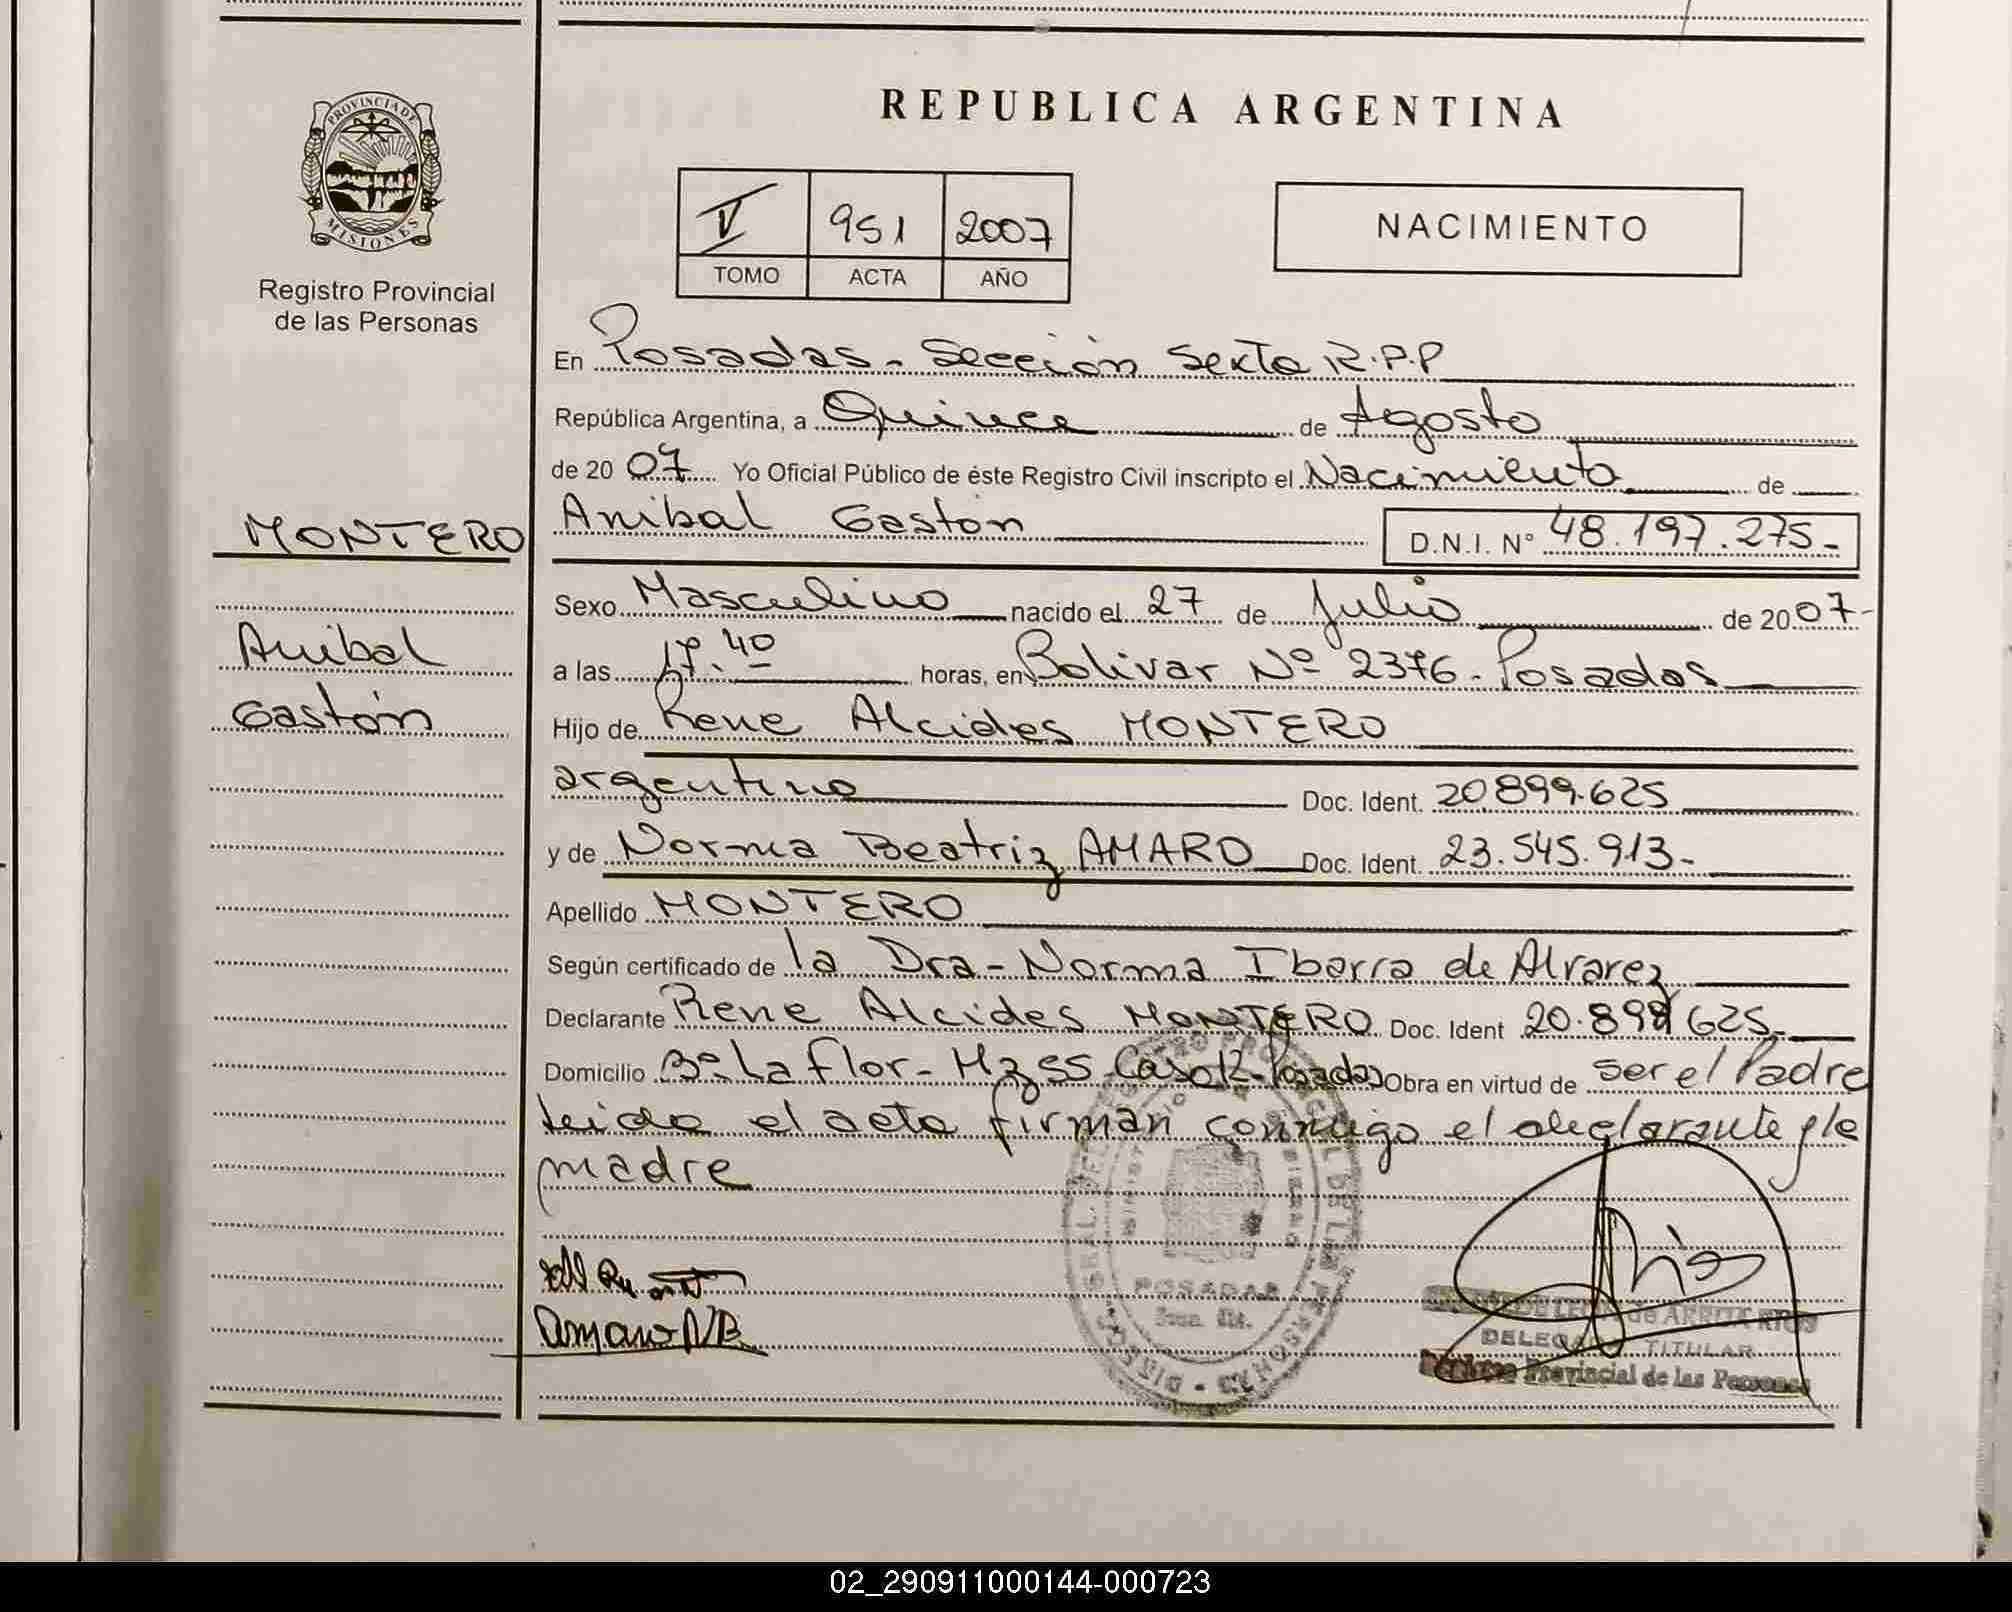 PROVINCIA DE
MISIONES
Registro Provincial
de las Personas
MONTERO
Anibal
Gastón
REPUBLICA ARGENTINA
V 951 2007
TOMO ACTA AÑO
NACIMIENTO
En Posadas - Sección Sexta R.P.P
República Argentina, a Quince de Agosto
de 20 07 Yo Oficial Público de éste Registro Civil inscripto el Nacimiento de
Anibal Gastón D.N.I. N° 48.197.275-
Sexo Masculino nacido el 27 de Julio de 20 07-
a las 17.40 horas, en Bolivar Nº 2376 - Posadas
Hijo de Rene Alcides MONTERO
argentino Doc. Ident. 20899.625
y de Norma Beatriz AMARO Doc. Ident. 23.545.913-
Apellido MONTERO
Según certificado de la Dra - Norma Ibarra de Alvarez
Declarante Rene Alcides MONTERO Doc. Ident 20.899 625-
Domicilio Bº La Flor - Mz 55 Casa 12 - Posadas Obra en virtud de ser el Padre
leido el acta firman conmigo el declarante y la
madre
Amaro NB
POSADAS
DELEGADO TITULAR
Registro Provincial de las Personas
02_290911000144-000723